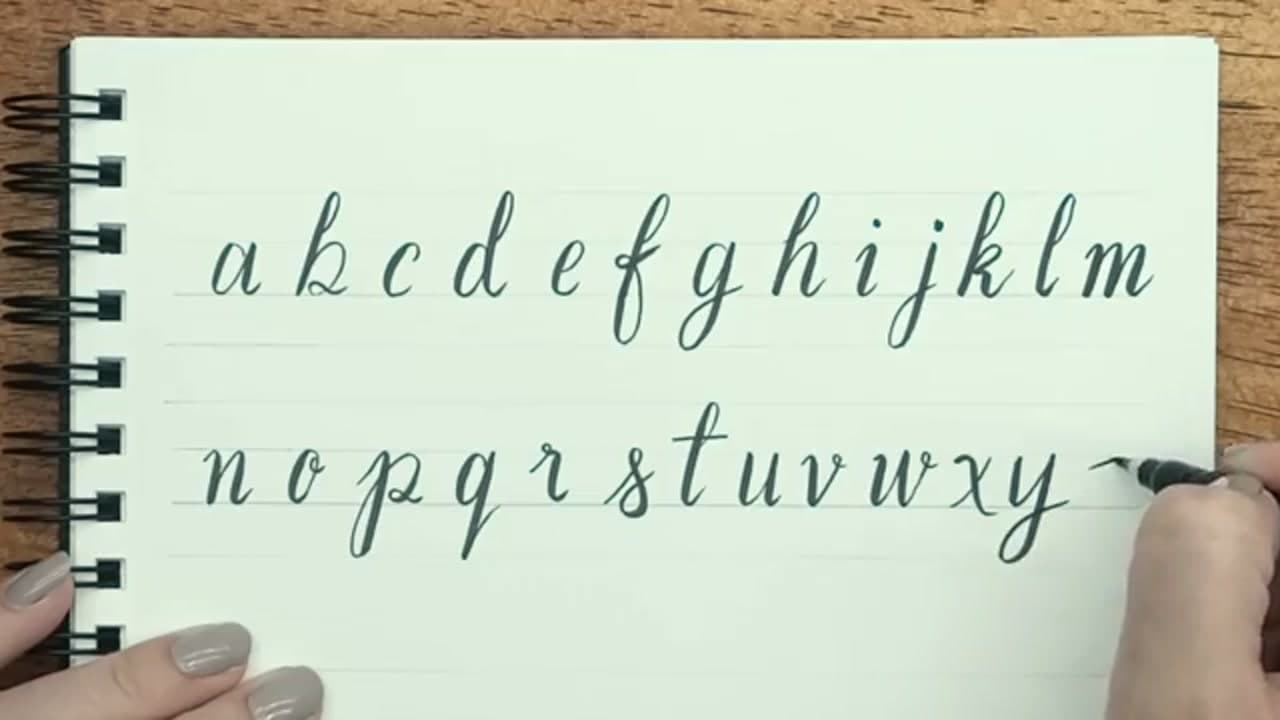 a b c d e f g h i j k l m
n o p q r s t u v w x y